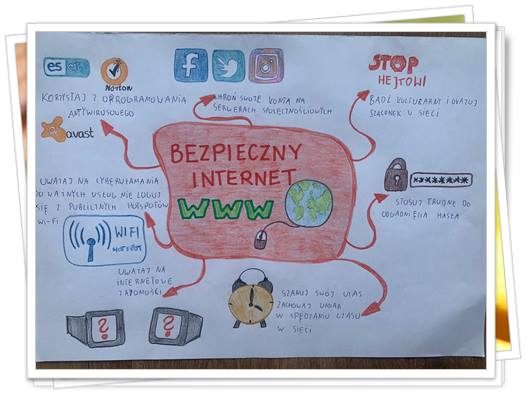 es
NORTON
KORZYSTAJ Z OPROGRAMOWANIA
ANTYWIRUSOWEGO
avast
CHROŃ SWOJE KONTA NA
SERWERACH SPOŁECZNOŚCIOWYCH
STOP
HEJTOWI
BĄDŹ KULTURALNY I OKAZUJ
SZACUNEK W SIECI
BEZPIECZNY
INTERNET
WWW
UWAŻAJ NA CYBERWŁAMANIA
DO WAŻNYCH USŁUG NIE LOGUJ
SIĘ Z PUBLICZNYCH HOTSPOTÓW
WI-FI
WIFI
HOTSPOT
********
STOSUJ TRUDNE DO
ODGADNIĘCIA HASŁA
UWAŻAJ NA
INTERNETOWE
ZNAJOMOŚCI
?
?
SZANUJ SWÓJ CZAS
ZACHOWAJ UMIAR
W SPĘDZANIU CZASU
W SIECI